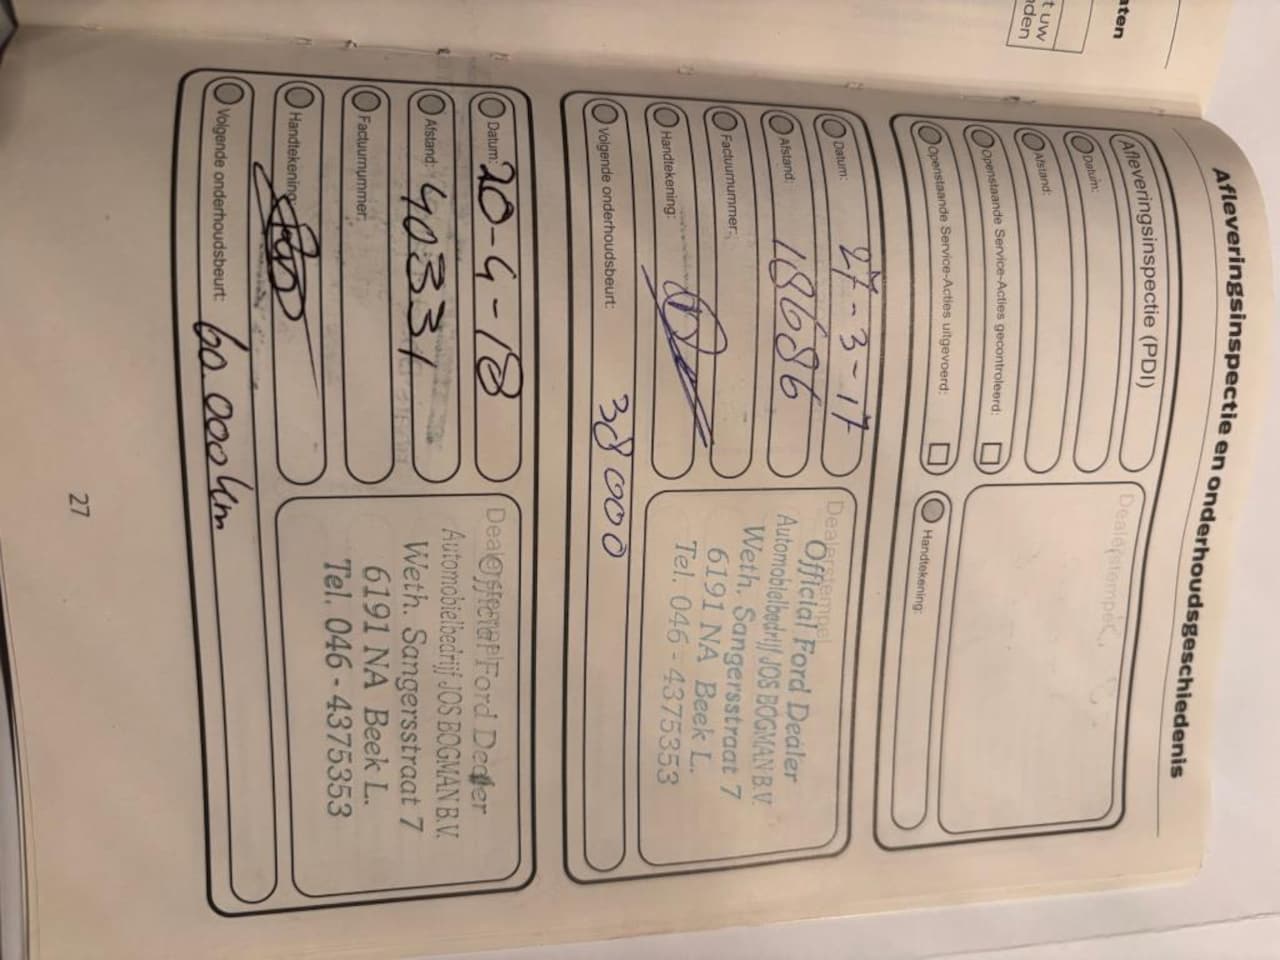 aten
t uw
den
Afleveringsinspectie en onderhoudsgeschiedenis
Afleveringsinspectie (PDI)
Datum:
Afstand:
Openstaande Service-Acties gecontroleerd:
Openstaande Service-Acties uitgevoerd:
Dealerstempel
Handtekening:
Datum: 27-3-17
Afstand: 18686
Factuurnummer:
Handtekening:
Volgende onderhoudsbeurt: 38000
Dealerstempel
Official Ford Dealer
Automobielbedrijf JOS BOGMAN B.V.
Weth. Sangersstraat 7
6191 NA Beek L.
Tel. 046 - 4375353
Datum: 20-4-18
Afstand: 40331
Factuurnummer:
Handtekening:
Volgende onderhoudsbeurt: 60.000 km
Dealerstempel
Official Ford Dealer
Automobielbedrijf JOS BOGMAN B.V.
Weth. Sangersstraat 7
6191 NA Beek L.
Tel. 046 - 4375353
27